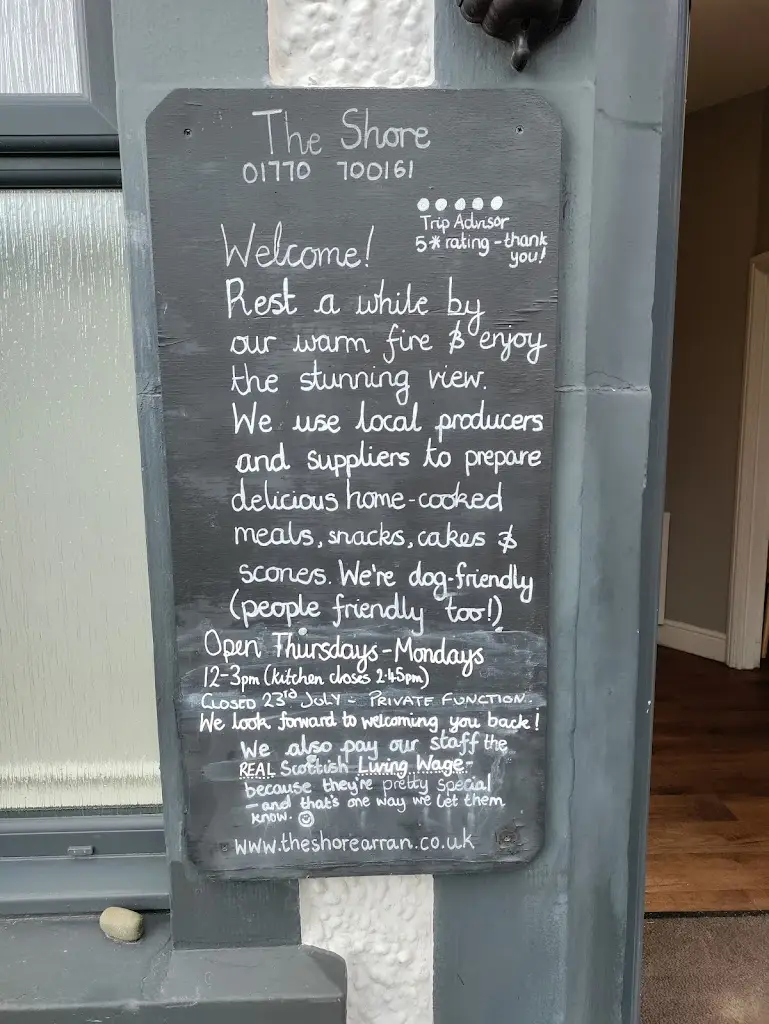 The Shore
01770 700161
Trip Advisor
5* rating - thank
you!
Welcome!
Rest a while by
our warm fire & enjoy
the stunning view.
We use local producers
and suppliers to prepare
delicious home-cooked
meals, snacks, cakes &
scones. We're dog-friendly
(people friendly too!)
Open Thursdays-Mondays
12-3pm (kitchen closes 2.45pm)
CLOSED 23rd JULY - PRIVATE FUNCTION.
We look forward to welcoming you back!
We also pay our staff the
REAL Scottish Living Wage-
because they're pretty special
- and that's one way we let them
know. ☺
www.theshorearran.co.uk